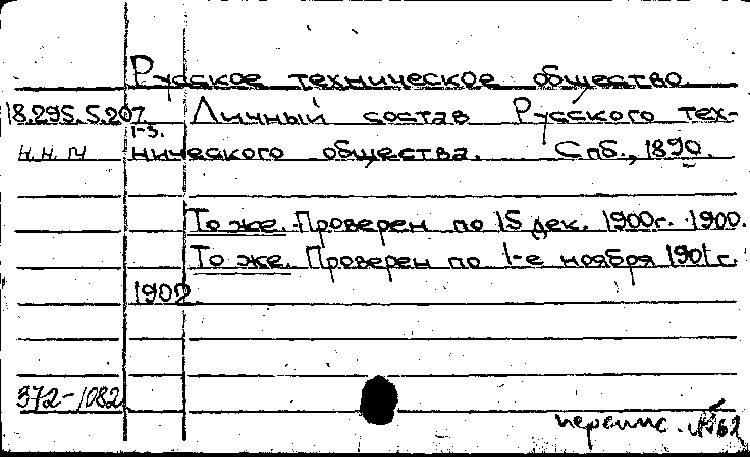 Русское техническое общество.
18.295.5.207. Личный состав Русского тех-
1-5.
н.н.м нического общества. Спб., 1890.
То же. Проверен по 15 дек. 1900г. 1900.
То же. Проверен по 1-е ноября 1901 г.
1902
372-1082
перепис.